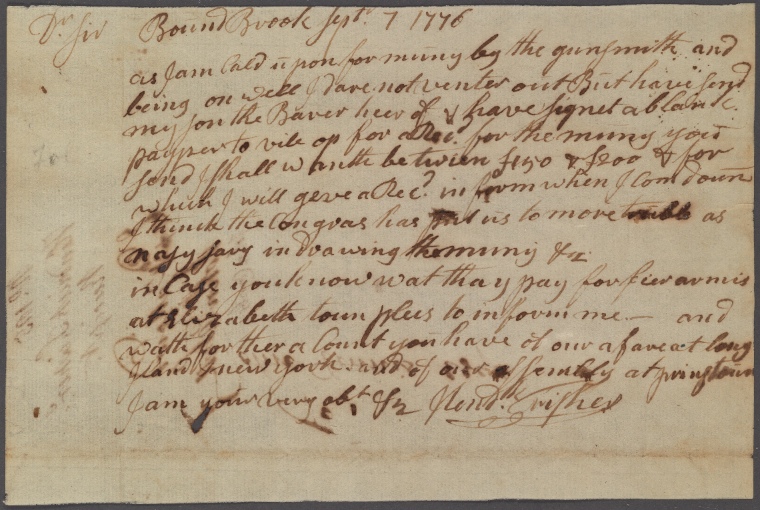 Dr Sir Bound Brook Septr 7 1776
as I am Cald upon for muny by the gunsmith and
being on well I dare not venter out But have send
my son the Baver heer of & have signet a blank
payper to vile op for a Recd. for the muny you'd
send I shall wanth betwien £150 & £200 & for
which I will geve a Recd. in form when I Com down
I think the Congras has put us to more as
nasy sary in drawing the muny &c
in Case you know wat thay pay for fier armis
at Elizabeth toun plees to inform me — and
wath for ther a Count you have of our afare at long
Iland & new york and of our assembly at prinstoun
I am your very obt &c Hendk. Fisher